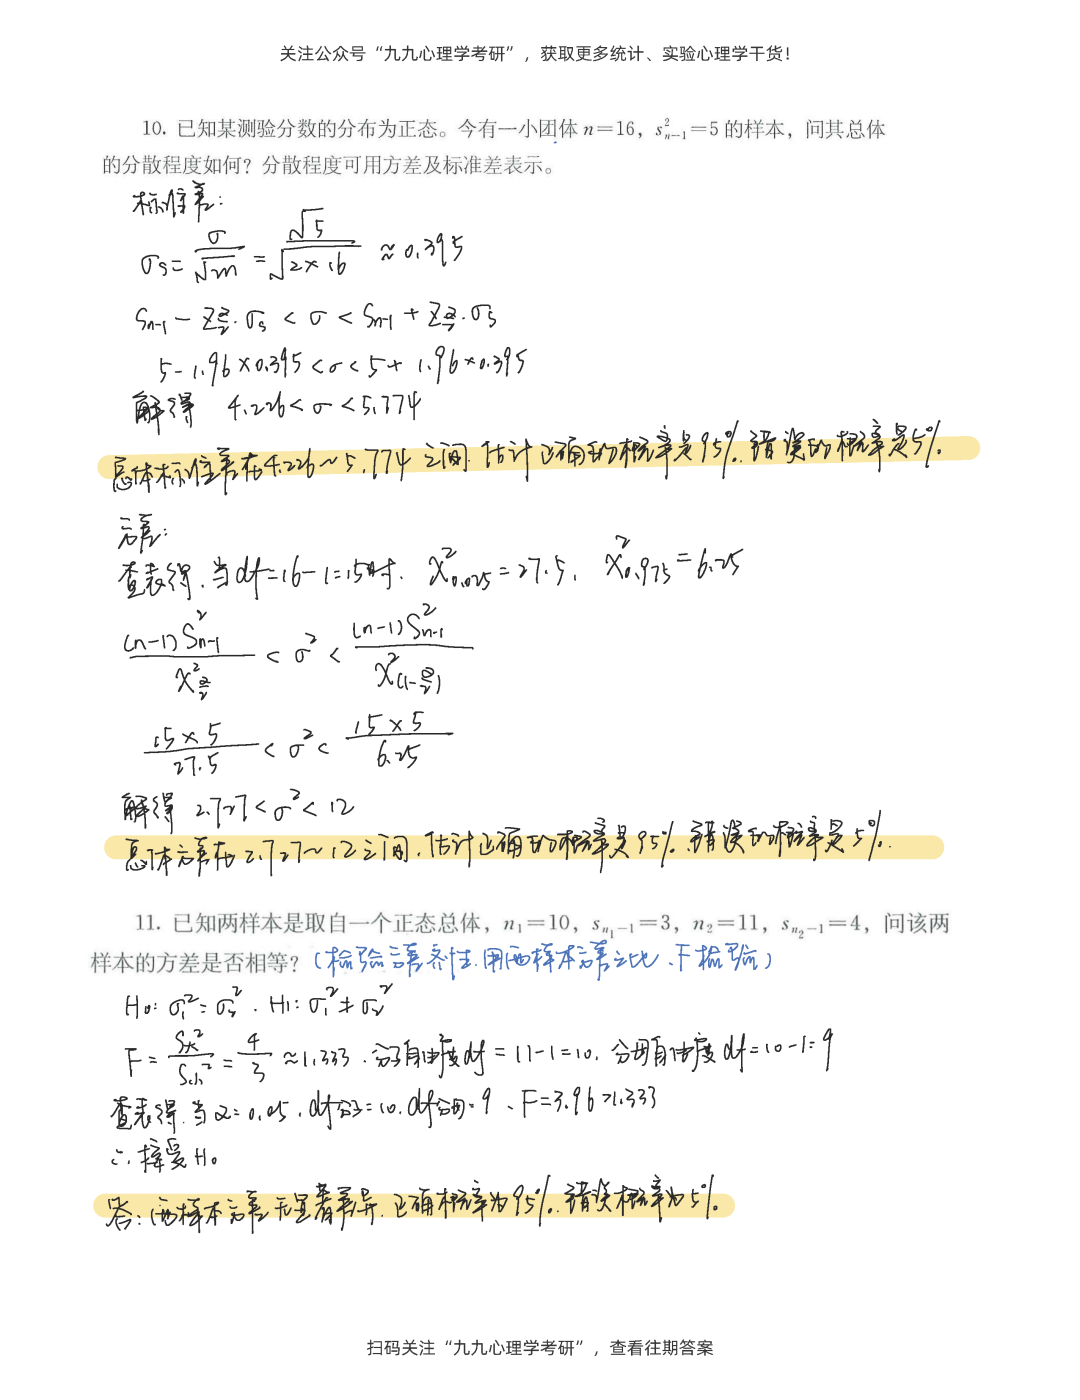 关注公众号“九九心理学考研”，获取更多统计、实验心理学干货！
10. 已知某测验分数的分布为正态。今有一小团体 n=16，s²ₙ₋₁=5 的样本，问其总体
的分散程度如何？分散程度可用方差及标准差表示。
标准差：
σs = σ/√2n = √5/√2×16 ≈ 0.395
Sn-1 - Zα/2·σs < σ < Sn-1 + Zα/2·σs
5-1.96×0.395<σ<5+1.96×0.395
解得 4.226<σ<5.774
总体标准差在4.226～5.774之间.估计正确的概率是95%.错误的概率是5%.
方差：
查表得.当df=16-1=15时. X²0.025=27.5, X²0.975=6.25
(n-1)S²n-1/X²α/2 < σ² < (n-1)S²n-1/X²(1-α/2)
15×5/27.5 < σ² < 15×5/6.25
解得 2.727<σ²<12
总体方差在2.727～12之间.估计正确的概率是95%.错误的概率是5%.
11. 已知两样本是取自一个正态总体，n₁=10，sn₁₋₁=3，n₂=11，sn₂₋₁=4，问该两
样本的方差是否相等？（检验方差齐性.用两样本方差之比、F检验）
H0: σ1²=σ2². H1: σ1²≠σ2²
F = S大²/S小² = 4/3 ≈1.333.分子自由度df=11-1=10.分母自由度df=10-1=9
查表得.当α=0.05.df分子=10.df分母=9、F=3.96>1.333
∴接受H0
答：两样本方差无显著差异.正确概率为95%.错误概率为5%.
扫码关注“九九心理学考研”，查看往期答案